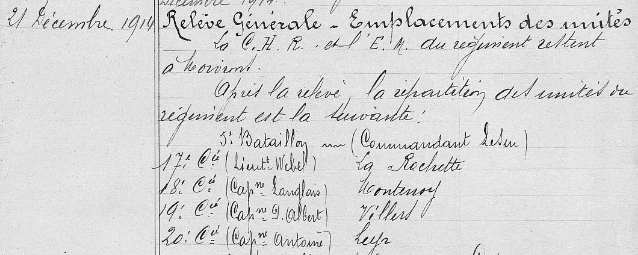 21 Décembre 1914 Relève Générale - Emplacements des unités
La C.H.R. et l'E.M. du régiment restent
à
Après la relève, la répartition des unités du
régiment est la suivante:
5e Bataillon (Commandant
17e Cie (Lieutt Webel) La Rochette
18e Cie (Capne Langlois) Montenoy
19e Cie (Capne D. Albert) Villers
20e Cie (Capne Antoine) Leyr